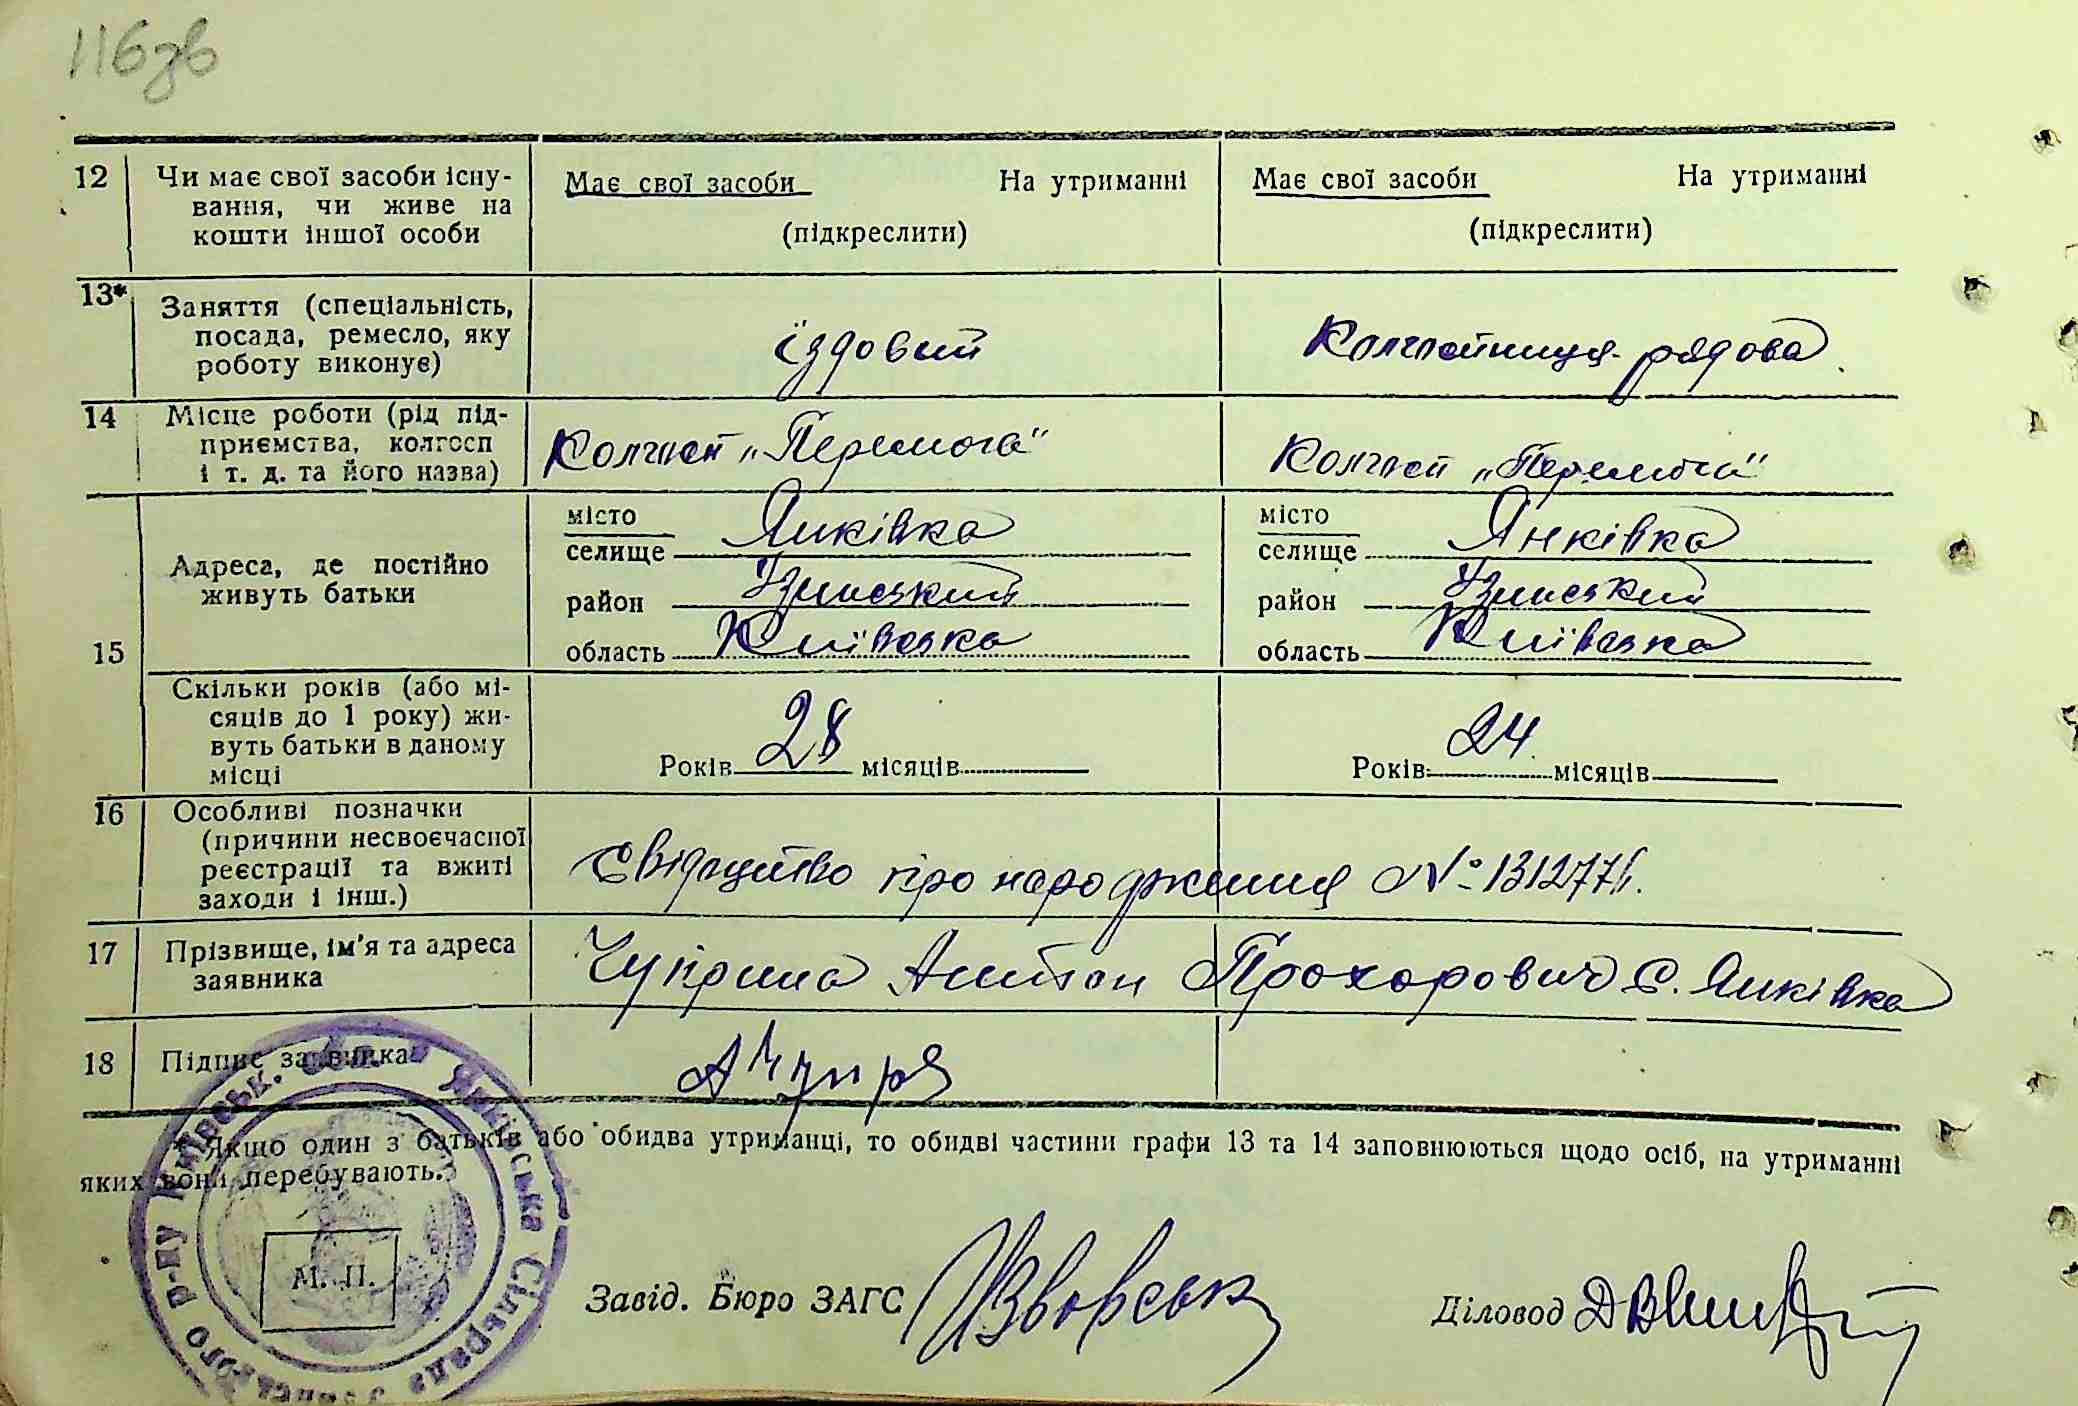 116зв
12 Чи має свої засоби існу-
вання, чи живе на
кошти іншої особи
Має свої засоби На утриманні
(підкреслити)
Має свої засоби На утриманні
(підкреслити)
13* Заняття (спеціальність,
посада, ремесло, яку
роботу виконує)
їздовий
Колгоспниця рядова.
14 Місце роботи (рід під-
приємства, колгосп
і т. д. та його назва)
Колгосп „Перемога"
Колгосп „Перемога"
15 Адреса, де постійно
живуть батьки
місто
селище Янківка
район Узинський
область Київська
місто
селище Янківка
район Узинський
область Київська
Скільки років (або мі-
сяців до 1 року) жи-
вуть батьки в даному
місці
Років 28 місяців
Років 24 місяців
16 Особливі позначки
(причини несвоєчасної
реєстрації та вжиті
заходи і інш.)
Свідоцтво про народження №
17 Прізвище, ім'я та адреса
заявника
Чуприна Антон Прохорович с. Янківка
18 Підпис заявника
* Якщо один з батьків або обидва утриманці, то обидві частини графи 13 та 14 заповнюються щодо осіб, на утриманні
яких вони перебувають.
М. П.
Янківська Сільрада Узинського р-ну Київськ. обл.
Завід. Бюро ЗАГС
Діловод